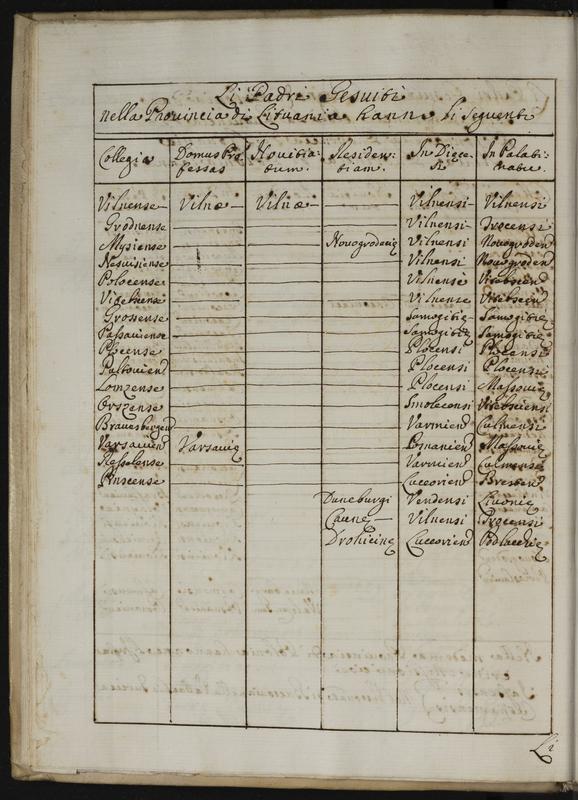 Li Padri Gesuiti
nella Prouincia di Lituania hanno li seguenti
Collegia Domus Pro- Nouitia- Residen- In Dioce- In Palati-
fessas tum. tiam. si natu.
Vilnense Vilnæ Vilnæ Vilnensi Vilnensi
Grodnense Vilnensi Trocensi
Mysiense Nouogrodeuię Vilnensi Nouogroden
Nesuisiense Vilnensi Nouogroden
Polocense Vilnensi Vitebscen
Vitebscense Vilnense Vitebscen
Crossense Samogitię Samogitię
Passauiense Samogitię Samogitię
Plocense Plocensi Plocensi
Pultouien Plocensi Plocensi
Lomzense Plocensi Massouię
Orszense Smolecensi Vitebsciensi
Braunsbergen Varmien Culmensi
Varsauien Varsauię Posnanien Massouię
Resselense Varmien Culmense
Pinscense Luceorien Bresten
Duneburgi Vendensi Liuonię
Caunę Vilnensi Trocensi
Drohicinę Luceorien Podlachię
Li